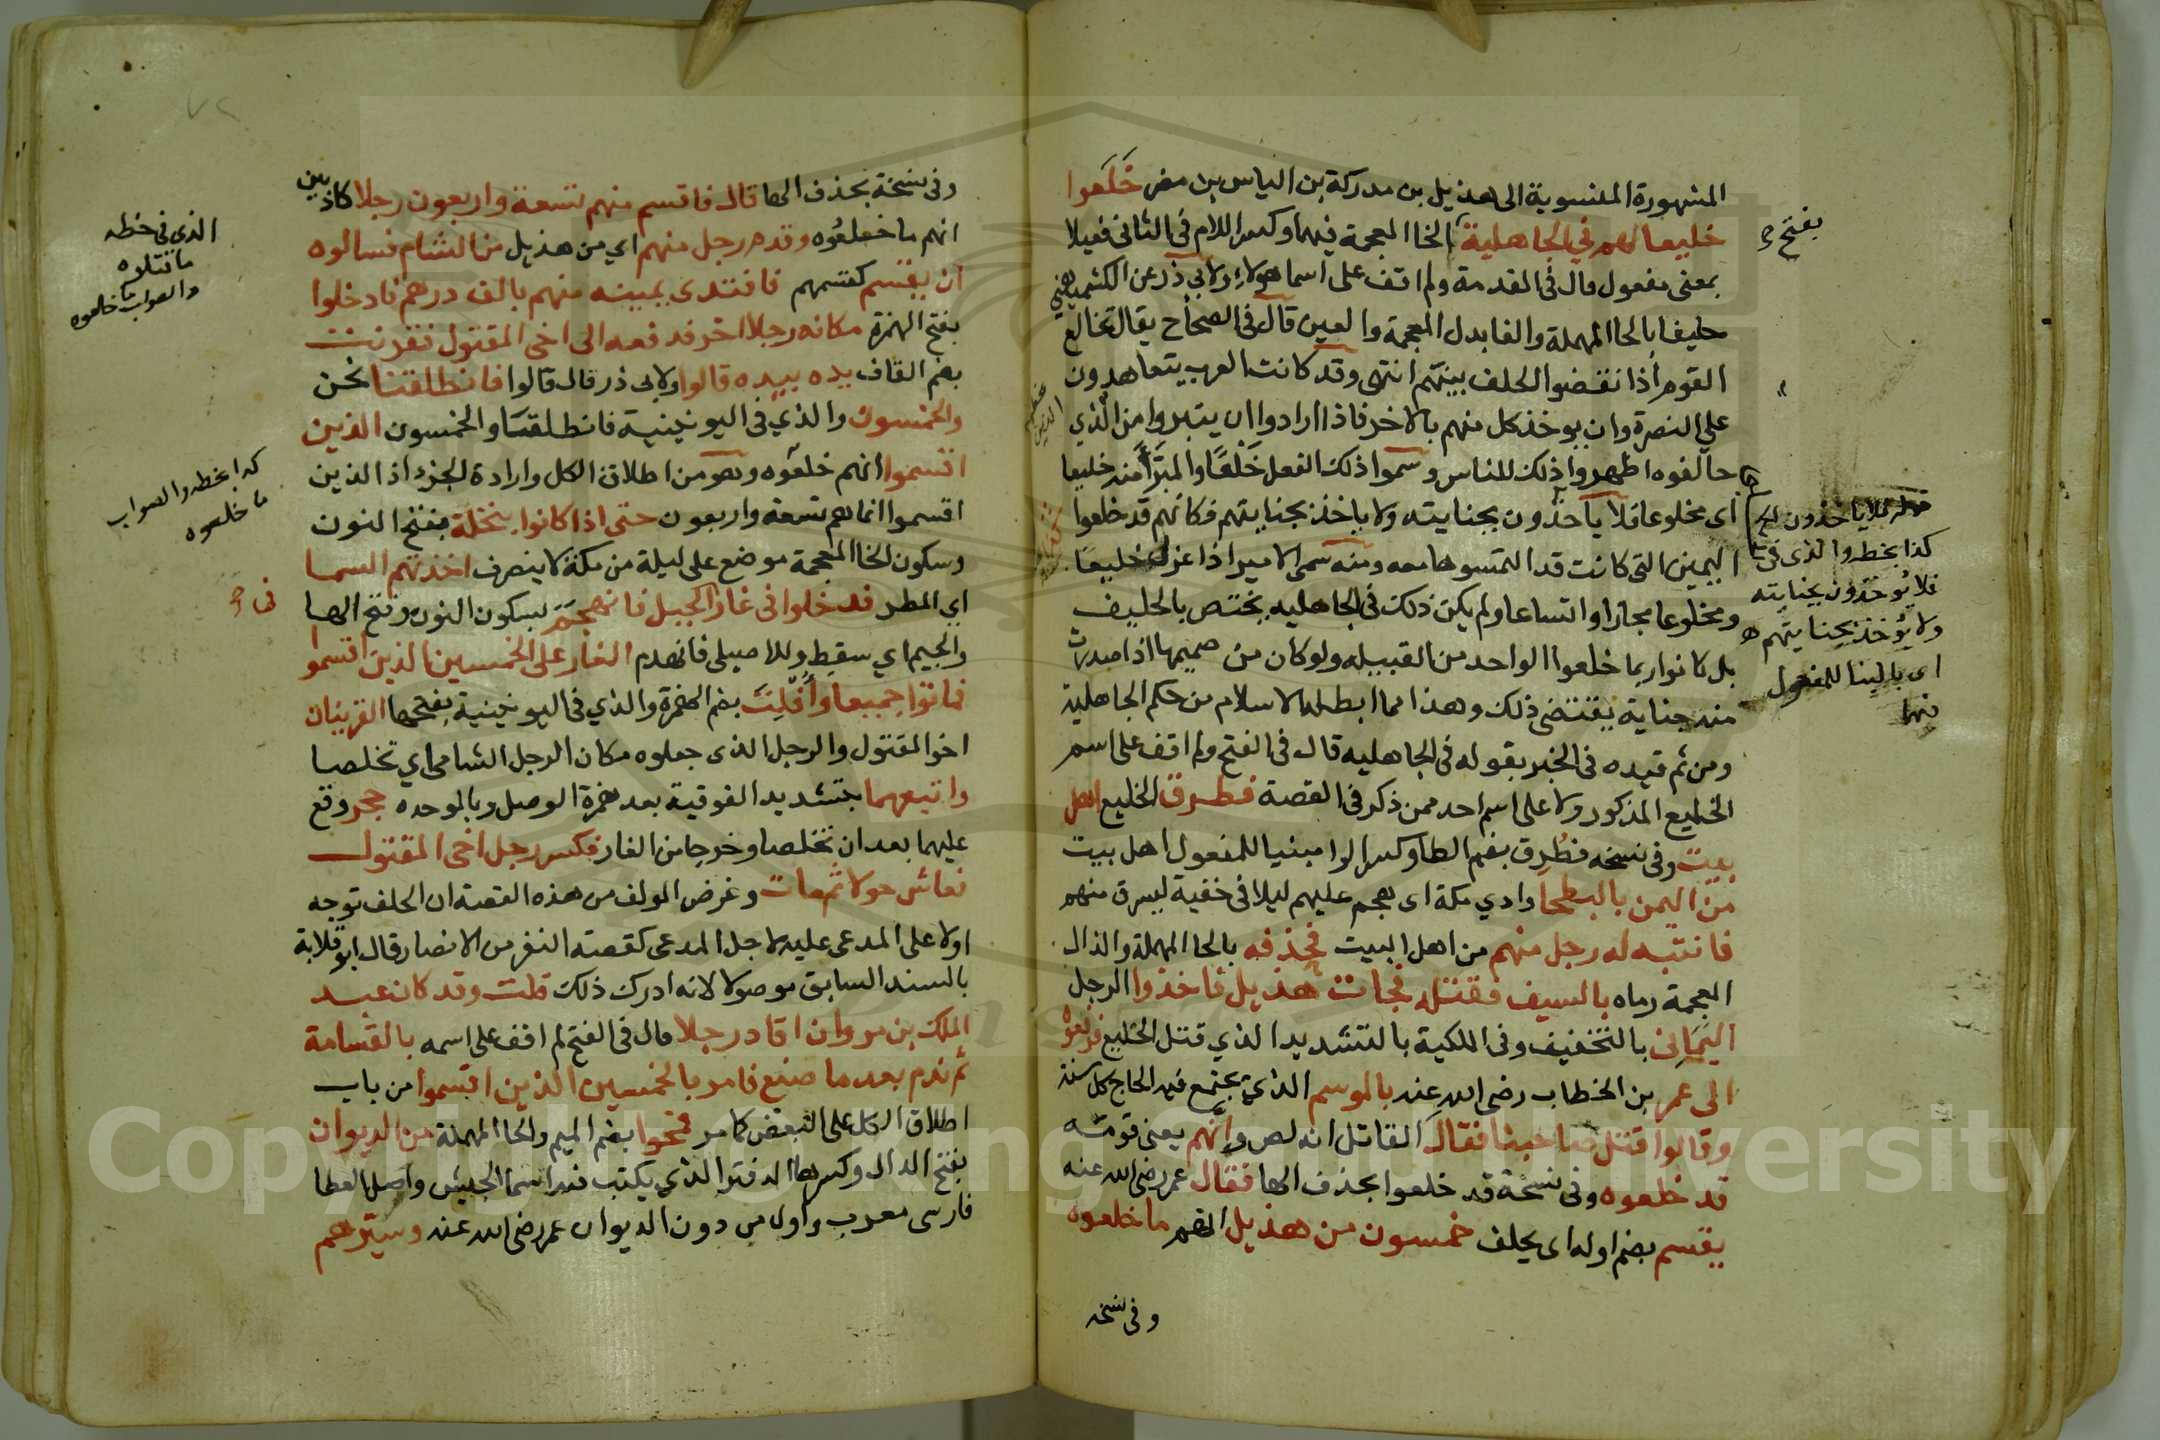 المشهورة المنسوبة الى هذيل بن مدركة بن الياس بن مضر خَلَعوا
خليعا لهم في الجاهلية الخا المعجمة فيهما وكسر اللام في الثاني فعيلا
بفتح
بمعنى مفعول قال في المقدمة ولم اقف على اسما هولاءِ ولابي ذر عن الكشميهني
حليفا بالحا المهملة والفا بدل المعجمة والعين قال في الصحاح يقال تخالع
القوم اذا نقضوا الحلف بينهم انتهى وقد كانت العرب يتعاهدون
على النصرة وان يوخذ كل منهم بالاخر فاذا ارادوا ان يتبروا من الذي
حالفوه اظهروا ذلك للناس وسموا ذلك الفعل خَلْعًا والمبَرَّأ منه خليعا
اى مخلوعا فلا ياخذون بجنايته ولا ياخذ بجنايتهم فكانهم قد خلعوا
اليمين التى كانت قد التمسوها معه ومنه سمى الامير اذا عزل خليعًا
ومخلوعا مجازا واتساعا ولم يكن ذلك في الجاهليه يختص بالحليف
بل كانوا ربما خلعوا الواحد من القبيله ولو كان من صميمها اذا صدرت
منه جناية يقتضى ذلك وهذا مما ابطله الاسلام من حكم الجاهلية
ومن ثم قيده في الخبر بقوله في الجاهليه قال في الفتح ولم اقف على اسم
الخليع المذكور ولا على اسم احد ممن ذكر في القصة فطرق الخليع اهل
بيت وفي نسخه فطُرِق بضم الطا وكسر الرا مبنيا للمفعول اهل بيت
من اليمن بالبطحا وادي مكة اى هجم عليهم ليلا في خفية ليسرق منهم
فانتبه له رجل منهم من اهل البيت فحذفه بالحا المهملة والذال
المعجمة رماه بالسيف فقتله فجات هذيل فاخذوا الرجل
اليَمَانى بالتخفيف وفي الملكية بالتشديد الذي قتل الخليع فرفعوه
الى عمر بن الخطاب رضى الله عنه بالموسم الذي يجتمع فيه الحاج كل سنة
وقالوا قتل صاحبنا فقال القاتل انه لص وإنَّهم يعنى قومه
قد خلعوه وفي نسخة قد خلعوا بحذف الها فقال عمر رضى الله عنه
يقسم بضم اوله اى يحلف خمسون من هذيل انهم ما خلعوه
وفي نسخه
قوله فلا ياخذون الخ
كذا بخطه والذى في
فلا يُوخذون بجنايته
ولا يُؤخذ بجنايتهم
اى بالبنا للمفعول
فيهما
وفي نسخة بحذف الها قال فاقسم منهم تسعة واربعون رجلا كاذبين
انهم ما خلعُوه وقدم رجل منهم اي من هذيل من الشام فسالوه
ان يقسم كقسمهم فافتدى يمينه منهم بالف درهم فادخلوا
بفتح الهمزة مكانه رجلا اخر فدفعه الى اخى المقتول فقرنت
بضم القاف يده بيده قالوا ولابى ذر قال قالوا فانطلقنا نحن
والخمسون والذي في اليونينية فانطلقا والخمسون الذين
اقسموا انهم خلعُوه وهو من اطلاق الكل وارادة الجزء اذ الذين
اقسموا انما هم تسعة واربعون حتى اذا كانوا بنخلة بفتح النون
وسكون الخا المعجمة موضع على ليلة من مكة لا ينصرف اخذتهم السما
اي المطر فدخلوا في غار الجبل فانهجَمَ بسكون النون وفتح الها
والجيم اي سقط وللاصيلى فانهدم الغار على الخمسين الذين اقسموا
فماتوا جميعا وأُفْلِتَ بضم الهمزة والذي في اليونينية بفتحها القرينان
اخو المقتول والرجل الذى جعلوه مكان الرجل الشامى اي تخلصا
واتبعهما بتشديد الفوقية بعد همزة الوصل وبالموحده حجر وقع
عليهما بعد ان تخلصا وخرجا من الغار فكسر رجل اخى المقتول
فعاش حولا ثم مات وغرض المولف من هذه القصة ان الحلف توجه
اولا على المدعى عليه لا على المدعى كقصة النفر من الانصار قال ابو قلابة
بالسند السابق موصولا لانه ادرك ذلك قلت وقد كان عبد
الملك بن مروان اقاد رجلا قال في الفتح لم اقف على اسمه بالقسامة
ثم ندم بعد ما صنع فامر بالخمسين الذين اقسموا من باب
اطلاق الكل على البعض كما مر فمحوا بضم الميم والحا المهملة من الديوان
بفتح الدال وكسرها الدفتر الذي يكتب فيه اسما الجيش واهل العطا
فارسى معرب واول من دون الديوان عمر رضى الله عنه وسيّرهم
الذي في خطه
ما قتلاه
والصواب ما خلعوه
كذا بخطه والصواب
ما خلعوه
فى
Copyright © King Saud University